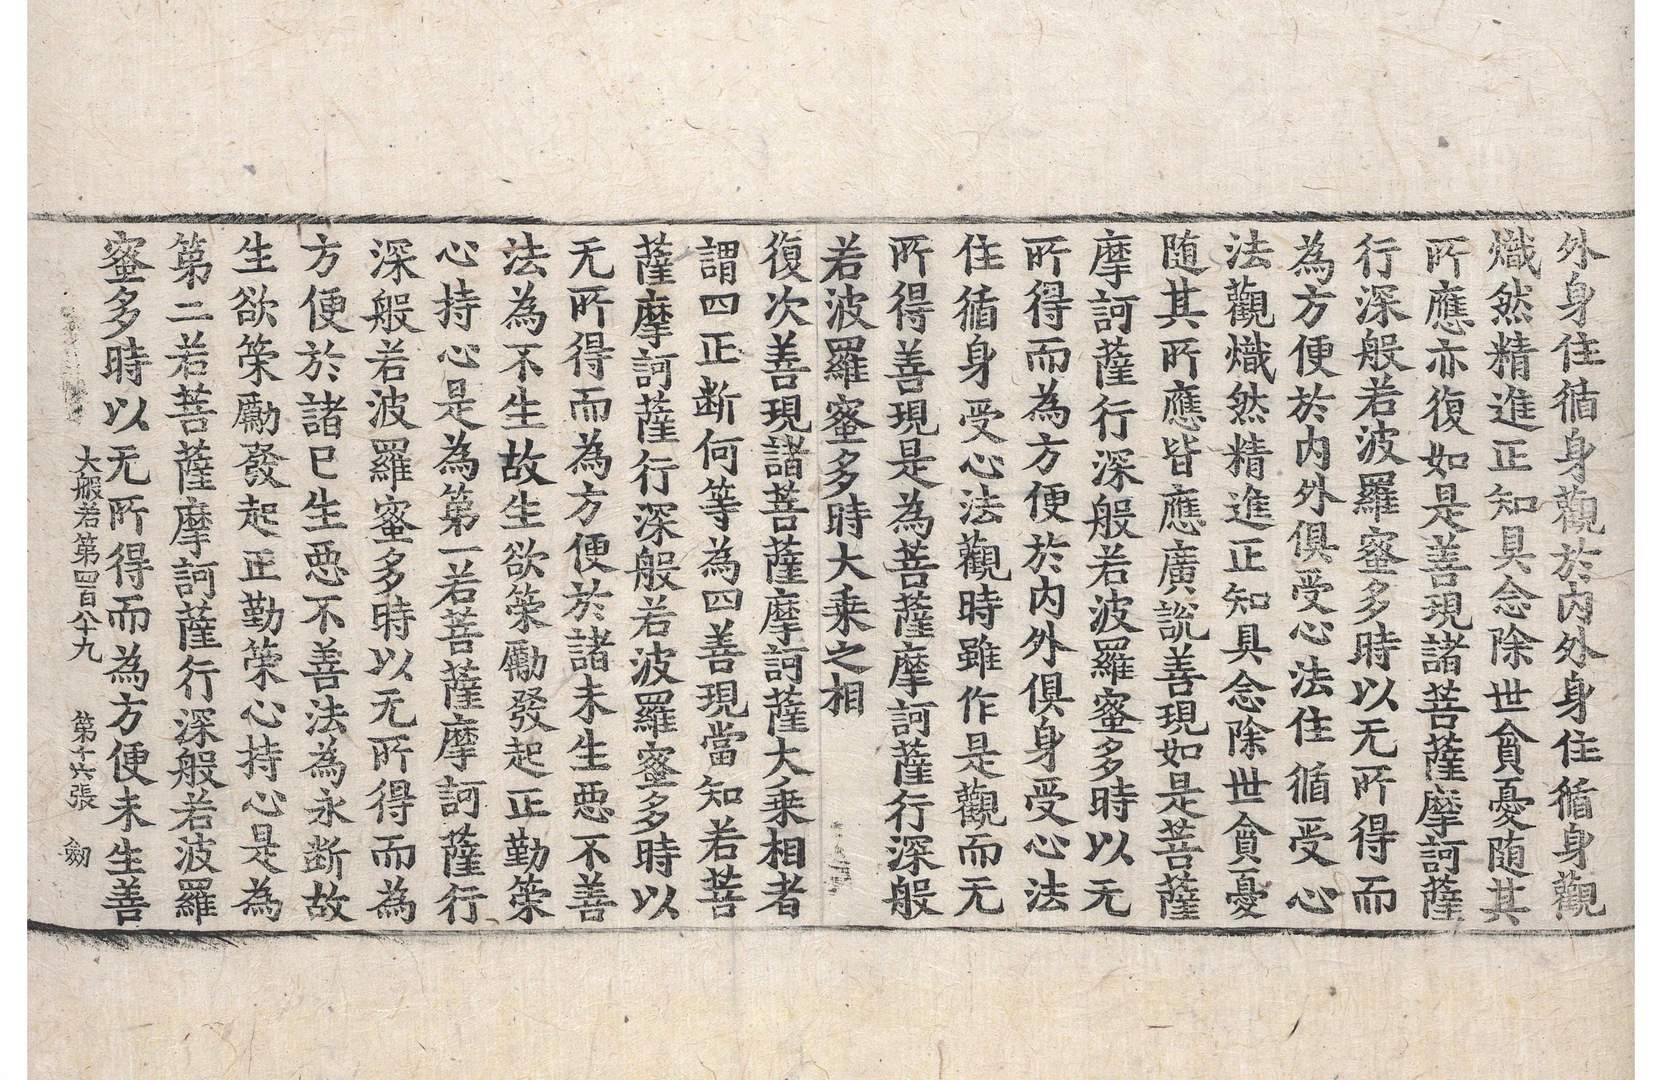 外身住循身觀於內外身住循身觀
熾然精進正知具念除世貪憂随其
所應亦復如是善現諸菩薩摩訶薩
行深般若波羅蜜多時以无所得而
為方便於內外俱受心法住循受心
法觀熾然精進正知具念除世貪憂
随其所應皆應廣說善現如是菩薩
摩訶薩行深般若波羅蜜多時以无
所得而為方便於內外俱身受心法
住循身受心法觀時雖作是觀而无
所得善現是為菩薩摩訶薩行深般
若波羅蜜多時大乗之相
復次善現諸菩薩摩訶薩大乗相者
謂四正断何等為四善現當知若菩
薩摩訶薩行深般若波羅蜜多時以
无所得而為方便於諸未生惡不善
法為不生故生欲策勵發起正勤策
心持心是為第一若菩薩摩訶薩行
深般若波羅蜜多時以无所得而為
方便於諸已生惡不善法為永断故
生欲策勵發起正勤策心持心是為
第二若菩薩摩訶薩行深般若波羅
蜜多時以无所得而為方便未生善
大般若第四百八十九 第十六張 劒